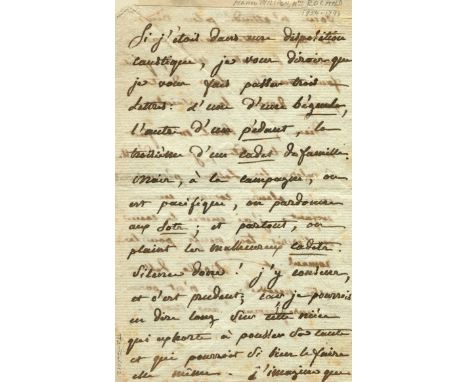 Manon PHLIPON, Mme ROLAND
1754-1793
Si j'étois dans une disposition
caustique, je vous dirois que
je vous fais passer trois
lettres: l'une d'une bégueule,
l'autre d'un pédant, la
troisième d'un cadet de famille.
Mais, à la campagne, on
est pacifique, on pardonne
aux sots; et partout, on
plaint les malheureux cadets.
Silence donc! j'y consens,
et c'est prudent; car je pourrois
en dire long sur cette nièce
qui exhorte à pousser sa tante
et qui pourroit si bien le faire
elle même. J'imagine que